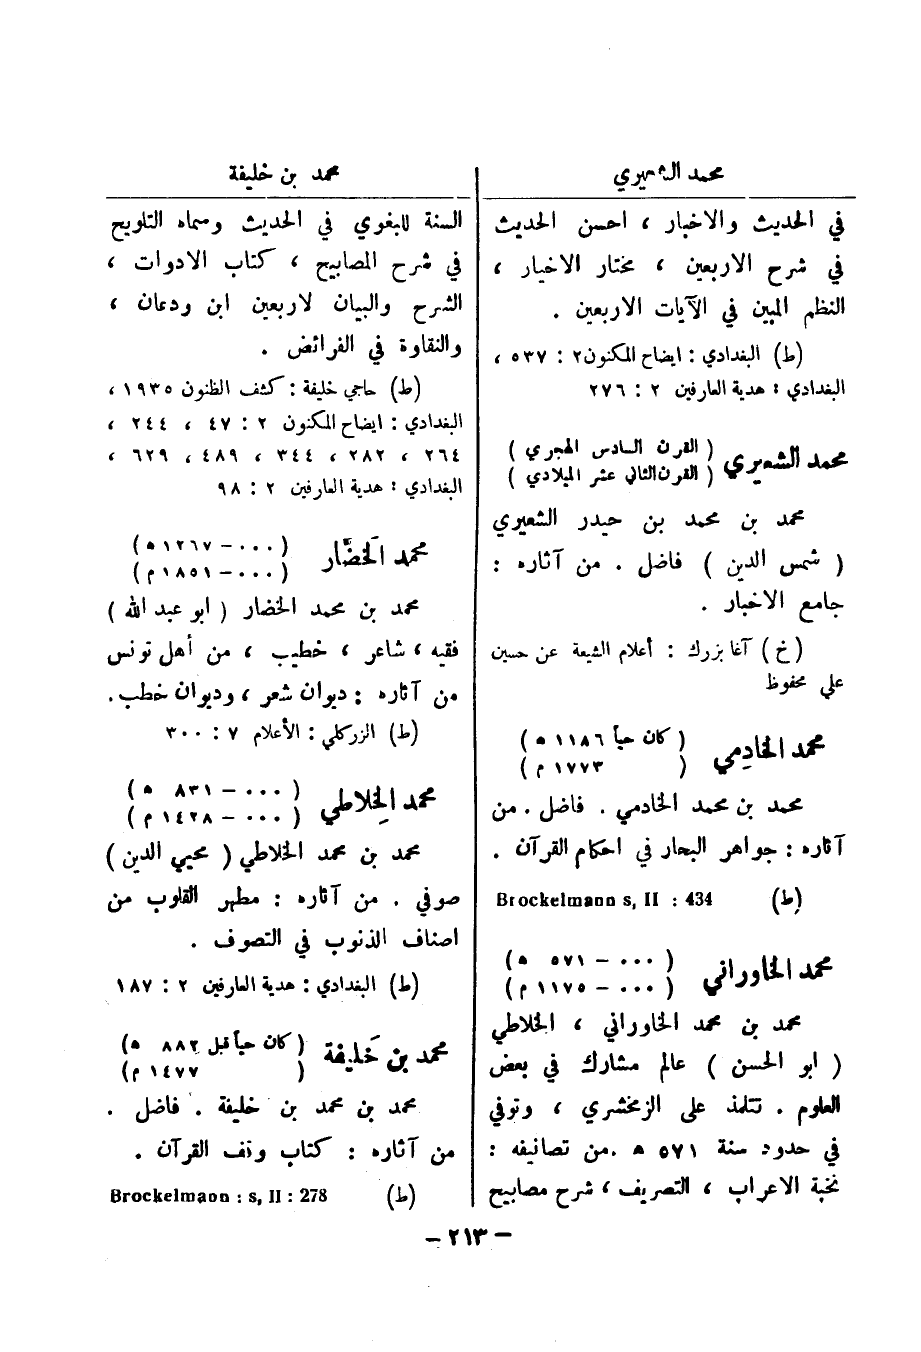 محمد الشعيري
في الحديث والاخبار ، احسن الحديث
في شرح الاربعين ، مختار الاخيار ،
النظم المبين في الآيات الاربعين .
(ط) البغدادي : ايضاح المكنون ٢ : ٥٣٧ ،
البغدادي : هدية العارفين ٢ : ٢٧٦
محمد الشعيري ( القرن السادس الهجري )
( القرن الثاني عشر الميلادي )
محمد بن محمد بن حيدر الشعيري
( شمس الدين ) فاضل . من آثاره :
جامع الاخبار .
(خ) آغا بزرك : أعلام الشيعة عن حسين
علي محفوظ
محمد الخادِمي ( كان حياً ١١٨٦ ه )
( ١٧٧٣ م )
محمد بن محمد الخادمي . فاضل . من
آثاره : جواهر البحار في احكام القرآن .
(ط) Brockelmann s, II : 434
محمد الخاوراني ( ٠٠٠ – ٥٧١ ه )
( ٠٠٠ – ١١٧٥ م )
محمد بن محمد الخاوراني ، الخلاطي
( ابو الحسن ) عالم مشارك في بعض
العلوم . تتلمذ على الزمخشري ، وتوفي
في حدود سنة ٥٧١ ه . من تصانيفه :
نخبة الاعراب ، التصريف ، شرح مصابيح
محمد بن خليفة
السنة للبغوي في الحديث وسماه التلويح
في شرح المصابيح ، كتاب الادوات ،
الشرح والبيان لاربعين ابن ودعان ،
والنقاوة في الفرائض .
(ط) حاجي خليفة : كشف الظنون ١٩٣٥ ،
البغدادي : ايضاح المكنون ٢ : ٤٧ ، ٢٤٤ ،
٢٦٤ ، ٢٨٢ ، ٣٤٤ ، ٤٨٩ ، ٦٢٩ ،
البغدادي : هدية العارفين ٢ : ٩٨
محمد الخَضَّار ( ٠٠٠ – ١٢٦٧ ه )
( ٠٠٠ – ١٨٥١ م )
محمد بن محمد الخضار ( ابو عبد الله )
فقيه ، شاعر ، خطيب ، من أهل تونس
من آثاره : ديوان شعر ، وديوان خطب .
(ط) الزركلي : الأعلام ٧ : ٣٠٠
محمد الخِلاطي ( ٠٠٠ – ٨٣١ ه )
( ٠٠٠ – ١٤٢٨ م )
محمد بن محمد الخلاطي ( محيي الدين )
صوفي . من آثاره : مطهر القلوب من
اصناف الذنوب في التصوف .
(ط) البغدادي : هدية العارفين ٢ : ١٨٧
محمد بن خَليفة ( كان حياً قبل ٨٨٢ ه )
( ١٤٧٧ م )
محمد بن محمد بن خليفة . فاضل .
من آثاره : كتاب وقف القرآن .
(ط) Brockelmann : s, II : 278
– ٢١٣ –